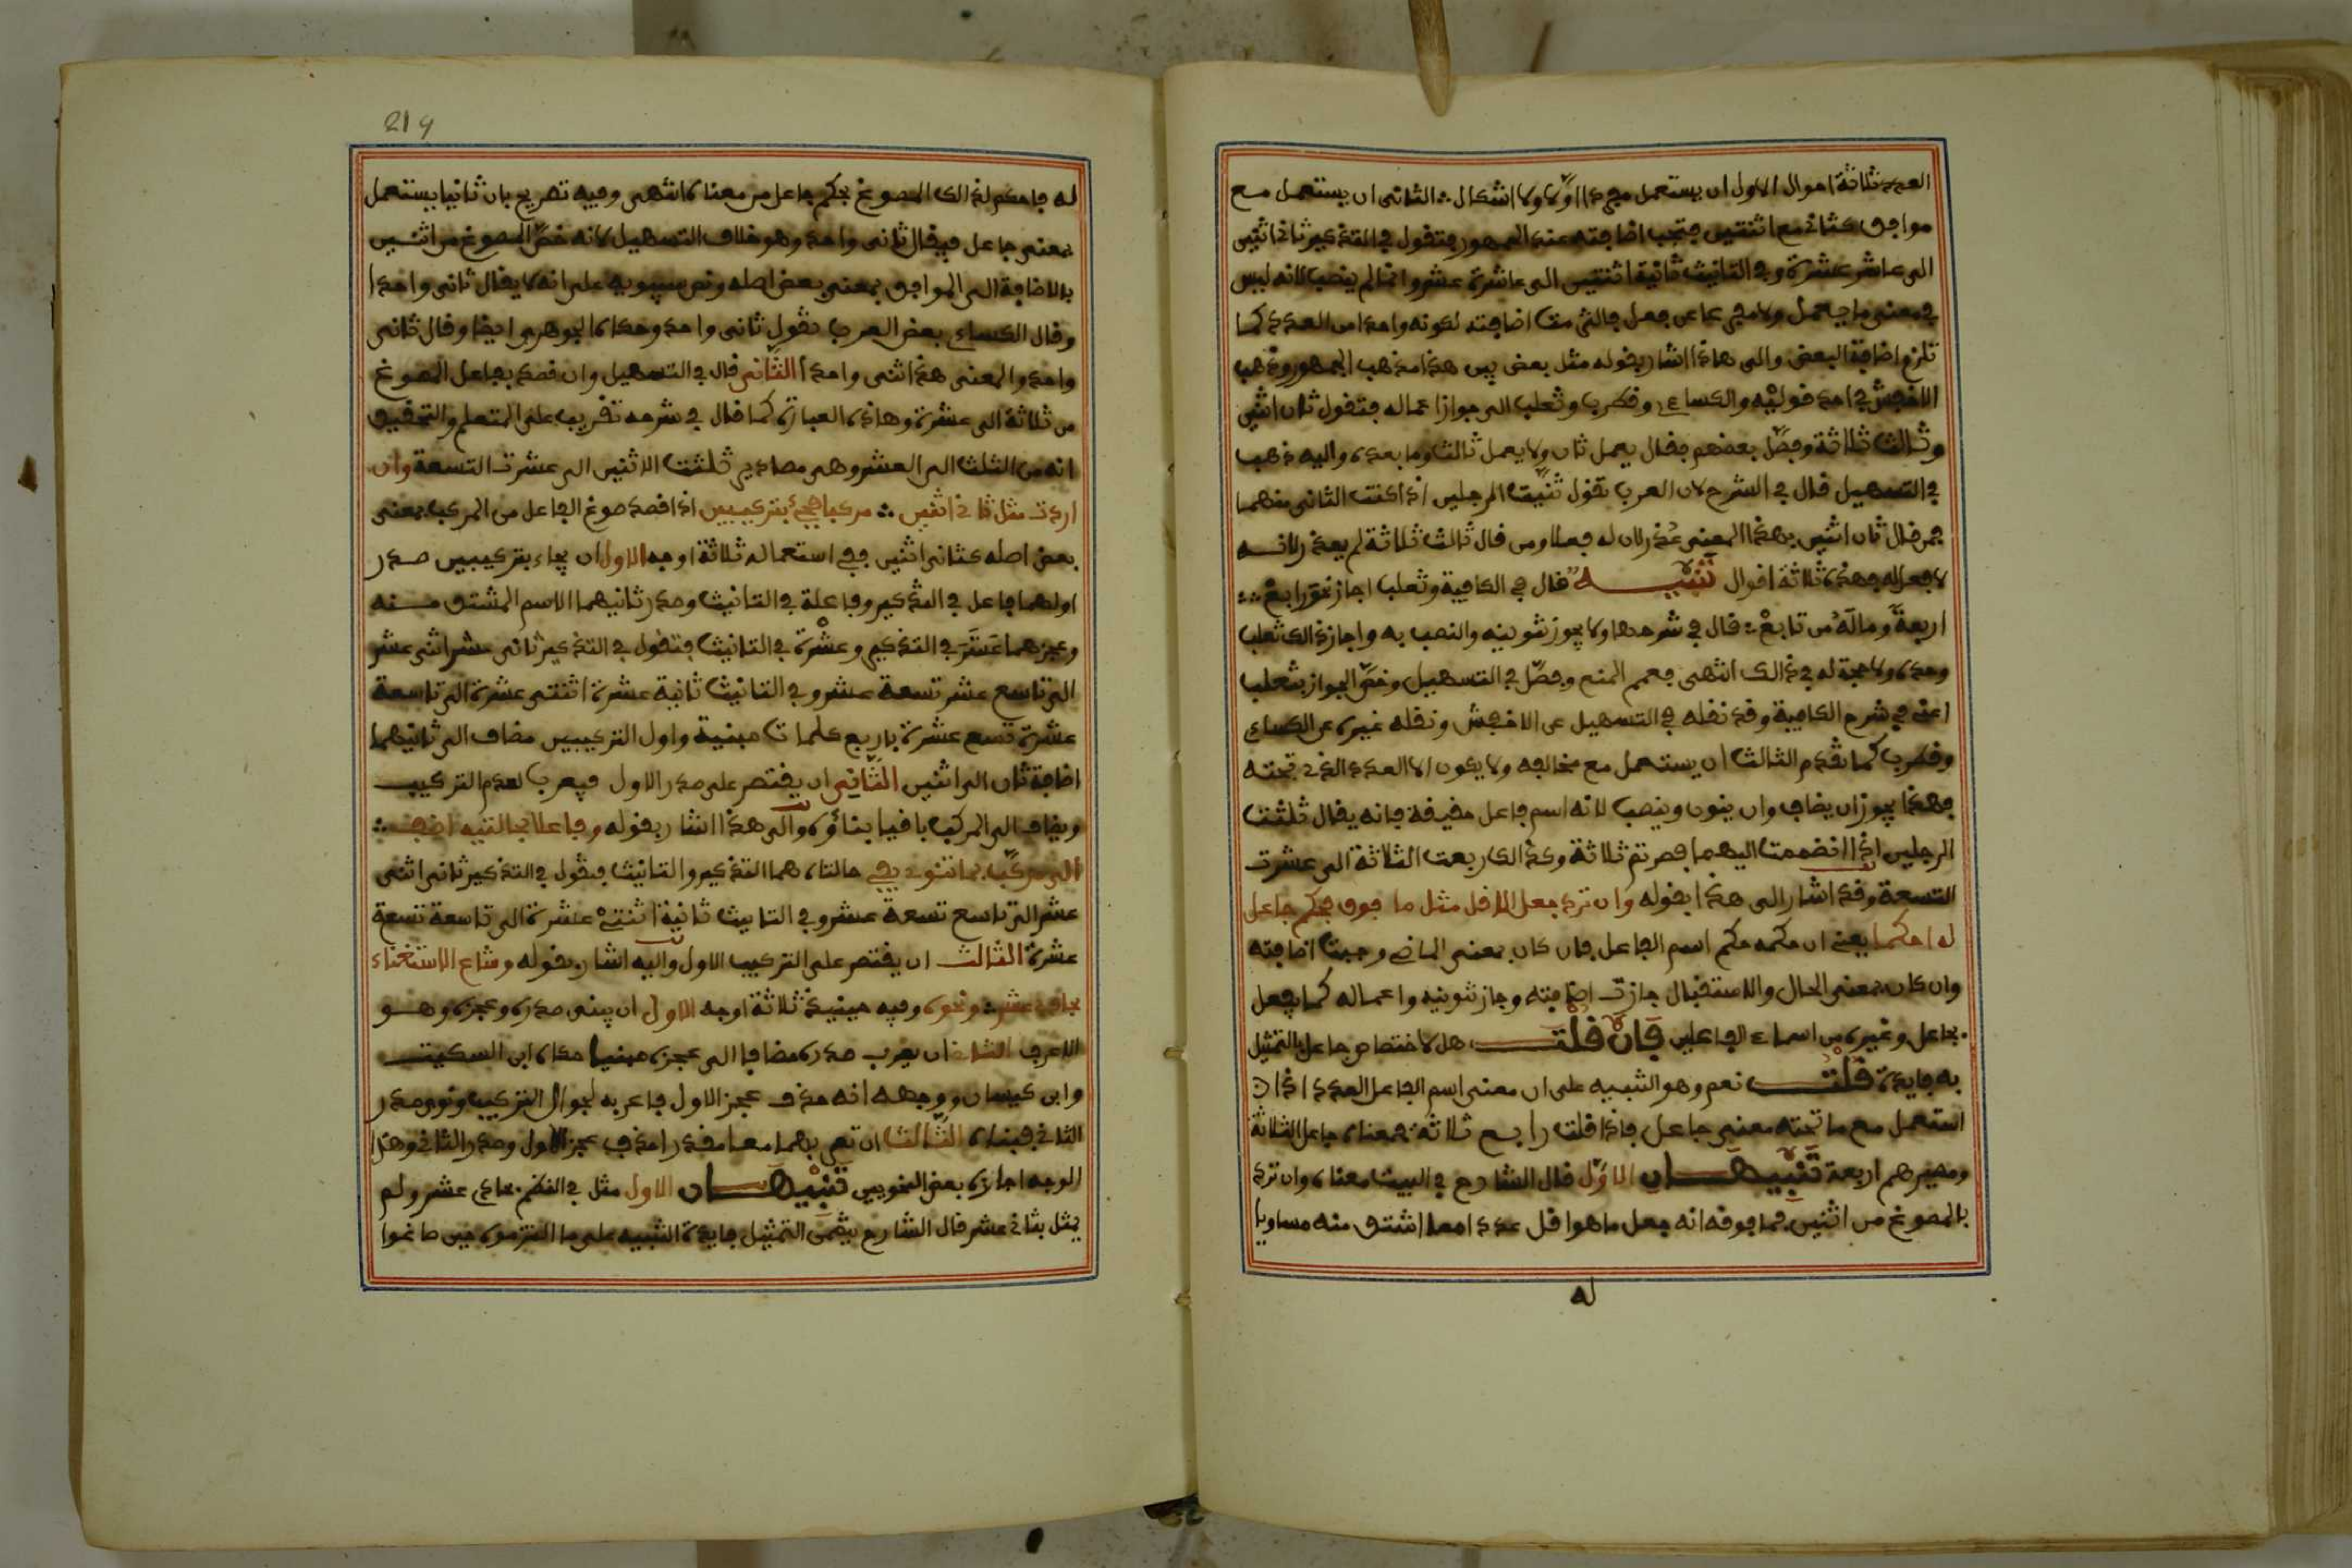 العدد ثلاثة احوال الاول ان يستعمل مجردا اولا ولا اشكال الثانى ان يستعمل مع
موافق كثان مع اثنتين فتجب اضافته عند الجمهور فتقول في التذكير ثانى اثنين
الى عاشر عشرة وفي التانيث ثانية اثنتين الى عاشرة عشر وانما لم ينصب لانه ليس
في معنى ما يعمل ولا مفرعا عن فعل فالتزمت اضافته لكونه واحدا من العدد كما
تلزم اضافة البعض والى هاذا اشار بقوله مثل بعض بين هذا مذهب الجمهور وذهب
الاخفش في احد قوليه والكساءي وقطرب وثعلب الى جواز اعماله فتقول ثان اثنين
وثالث ثلاثة وفصّل بعضهم فقال يعمل ثان ولا يعمل ثالث وما بعده واليه ذهب
في التسهيل قال في الشرح لان العرب تقول ثنيت الرجلين اذا كنت الثانى منهما
فمن قال ثان اثنين بهذا المعنى عذر لان له فعلا ومن قال ثالث ثلاثة لم يعذر لانه
لا فعل له فهذه ثلاثة اقوال تنبيه قال في الكافية وثعلب اجاز نحو رابع
اربعة وماله من تابع قال في شرحها ولا يجوز تنوينه والنصب به واجاز ذالك ثعلب
وحده ولا حجة له في ذالك انتهى فعمم المنع وفصّل في التسهيل وخصّ الجواز بثعلب
اعنى في شرح الكافية وقد نقله في التسهيل عن الاخفش ونقله غيره عن الكساءي
وقطرب كما تقدم الثالث ان يستعمل مع مخالفه ولا يكون الا العدد الذى تحته
فهذا يجوز ان يضاف وان ينون وينصب لانه اسم فاعل حقيقة فانه يقال ثلثت
الرجلين اذا انضممت اليهما فصرتم ثلاثة وكذالك ربعت الثلاثة الى عشرت
التسعة وقد اشار الى هذا بقوله وان ترد جعل الاقل مثل ما فوق فحكم جاعل
له احكما يعنى ان حكمه حكم اسم الفاعل فان كان بمعنى الماضى وجبت اضافته
وان كان بمعنى الحال والاستقبال جازت اضافته وجاز تنوينه واعماله كما يفعل
بجاعل وغيره من اسماء الفاعلين فان قلت هل لاختصاص جاعل بالتمثيل
به فايدة قلت نعم وهو التنبيه على ان معنى اسم الفاعل العدد اذا
استعمل مع ما تحته معنى جاعل فاذا قلت رابع ثلاثة فمعناه جاعل الثلاثة
ومصيرهم اربعة تنبيهان الاول قال الشارح في البيت معناه وان ترد
بالمصوغ من اثنين فما فوقه انه جعل ما هو اقل عددا مما اشتق منه مساويا
له
219
له فاحكم لذالك المصوغ بحكم جاعل من معناه انتهى وفيه تصريح بان ثانيا يستعمل
بمعنى جاعل فيقال ثانى واحد وهو خلاف التسهيل لانه خصّ المصوغ من اثنين
بالاضافة الى الموافق بمعنى بعض اصله ونص سيبويه على انه لا يقال ثانى واحدا
وقال الكساءي بعض العرب تقول ثانى واحد وحكاه الجوهرى ايضا وقال ثانى
واحد والمعنى هذا ثنى واحدا الثانى قال في التسهيل وان قصد بفاعل المصوغ
من ثلاثة الى عشرة وهاذه العبارة كما قال في شرحه تقريب على المتعلم والتحقيق
انه من الثلث الى العشر وهى مصادر ثلثت الاثنين الى عشرت التسعة وان
اردت مثل ثانى اثنين مركبا فجئ بتركيبين اذا قصد صوغ الفاعل من المركب بمعنى
بعض اصله كثانى اثنين ففي استعماله ثلاثة اوجه الاول ان يجاء بتركيبين صدر
اولهما فاعل في التذكير وفاعلة في التانيث وصدر ثانيهما الاسم المشتق منه
وعجزهما عشر في التذكير وعشرة في التانيث فتقول في التذكير ثانى عشر اثنى عشر
الى تاسع عشر تسعة عشر وفي التانيث ثانية عشرة اثنتى عشرة الى تاسعة
عشرة تسع عشرة باربع كلمات مبنية واول التركيبين مضاف الى ثانيهما
اضافة ثان الى اثنين الثانى ان يقتصر على صدر الاول فيعرب لعدم التركيب
ويضاف الى المركب باقيا بناؤه والى هذا اشار بقوله وفاعلا بحالتيه اضف
الى مركب بما تنوى يفى حالتاه هما التذكير والتانيث فتقول في التذكير ثانى اثنى
عشر الى تاسع تسعة عشر وفي التانيث ثانية اثنتى عشرة الى تاسعة تسعة
عشرة الثالث ان يقتصر على التركيب الاول واليه اشار بقوله وشاع الاستغناء
بحادى عشر ونحوه وفيه حينيذ ثلاثة اوجه الاول ان يبنى صدره وعجزه وهو
الاعرف الثانى ان يعرب صدره مضافا الى عجزه مبنيا حكاه ابن السكيت
وابن كيسان ووجهه انه حذف عجز الاول فاعربه لزوال التركيب ونوى صدر
الثانى فبناه الثالث ان تعربهما معا مقدرا حذف عجز الاول وصدر الثانى وهذا
الوجه اجازه بعض النحويين تنبيهان الاول مثل في النظم بحادى عشر ولم
يمثل بثانى عشر قال الشارح ليضمن التمثيل فايدة التنبيه على ما التزموه حين صاغوا